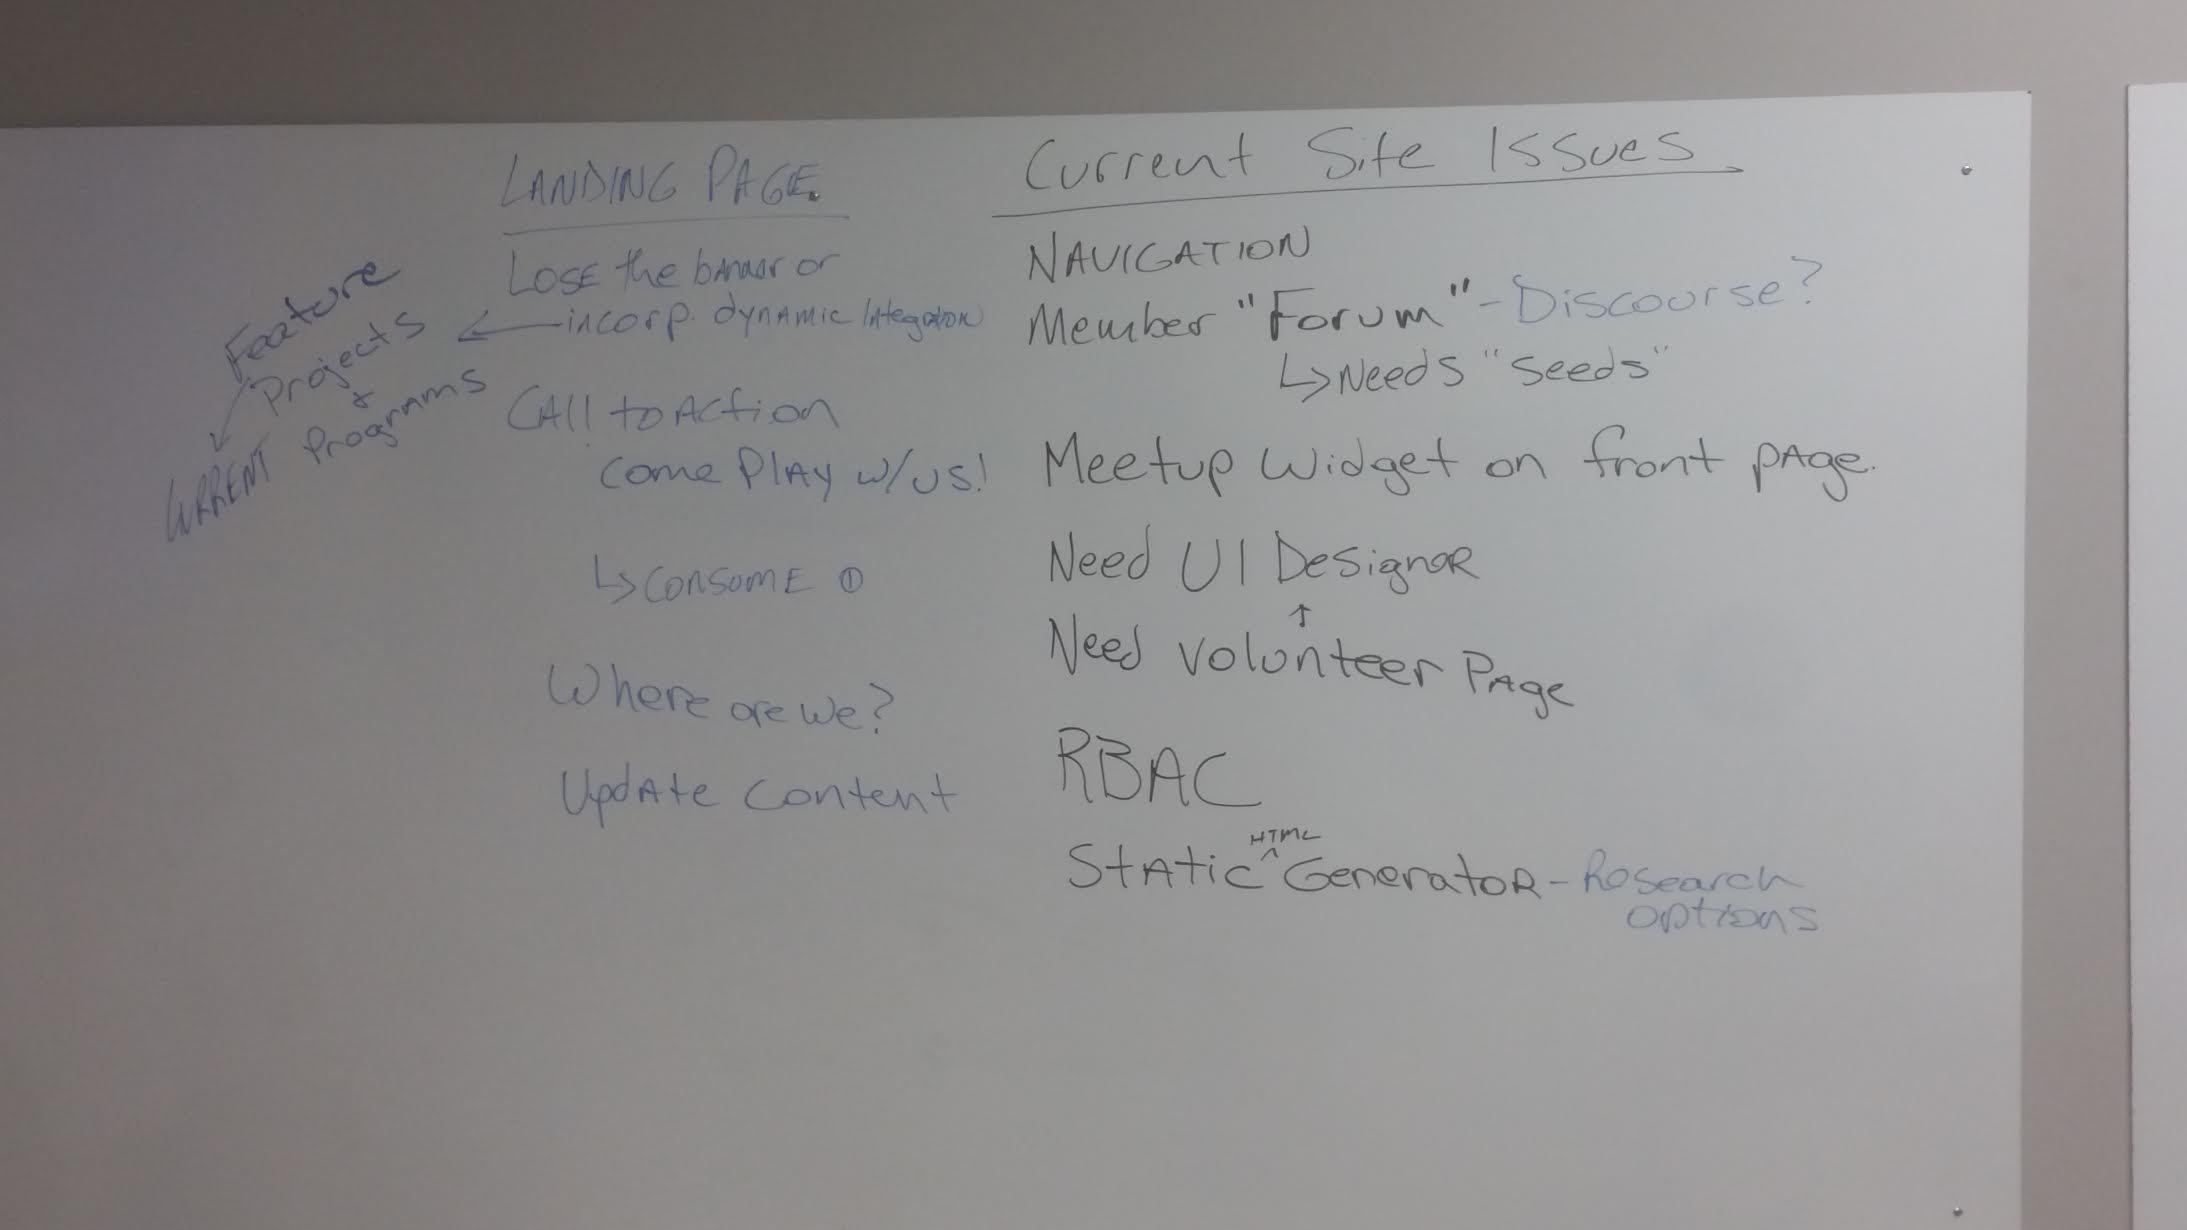 LANDING PAGE
LOSE the banner or
incorp. dynamic Integration
Feature
Projects
&
Programs
CURRENT
CAll to Action
come PlAy w/us!
↳ CONSUME ①
Where are we?
UpdAte content
Current Site Issues
NAVIGATION
Member "Forum" - Discourse?
↳ Needs "seeds"
Meetup Widget on front pAge.
Need UI DesignoR
↑
Need Volunteer PAge
RBAC
HTML
StAtic ^ GeneratoR - Research
options